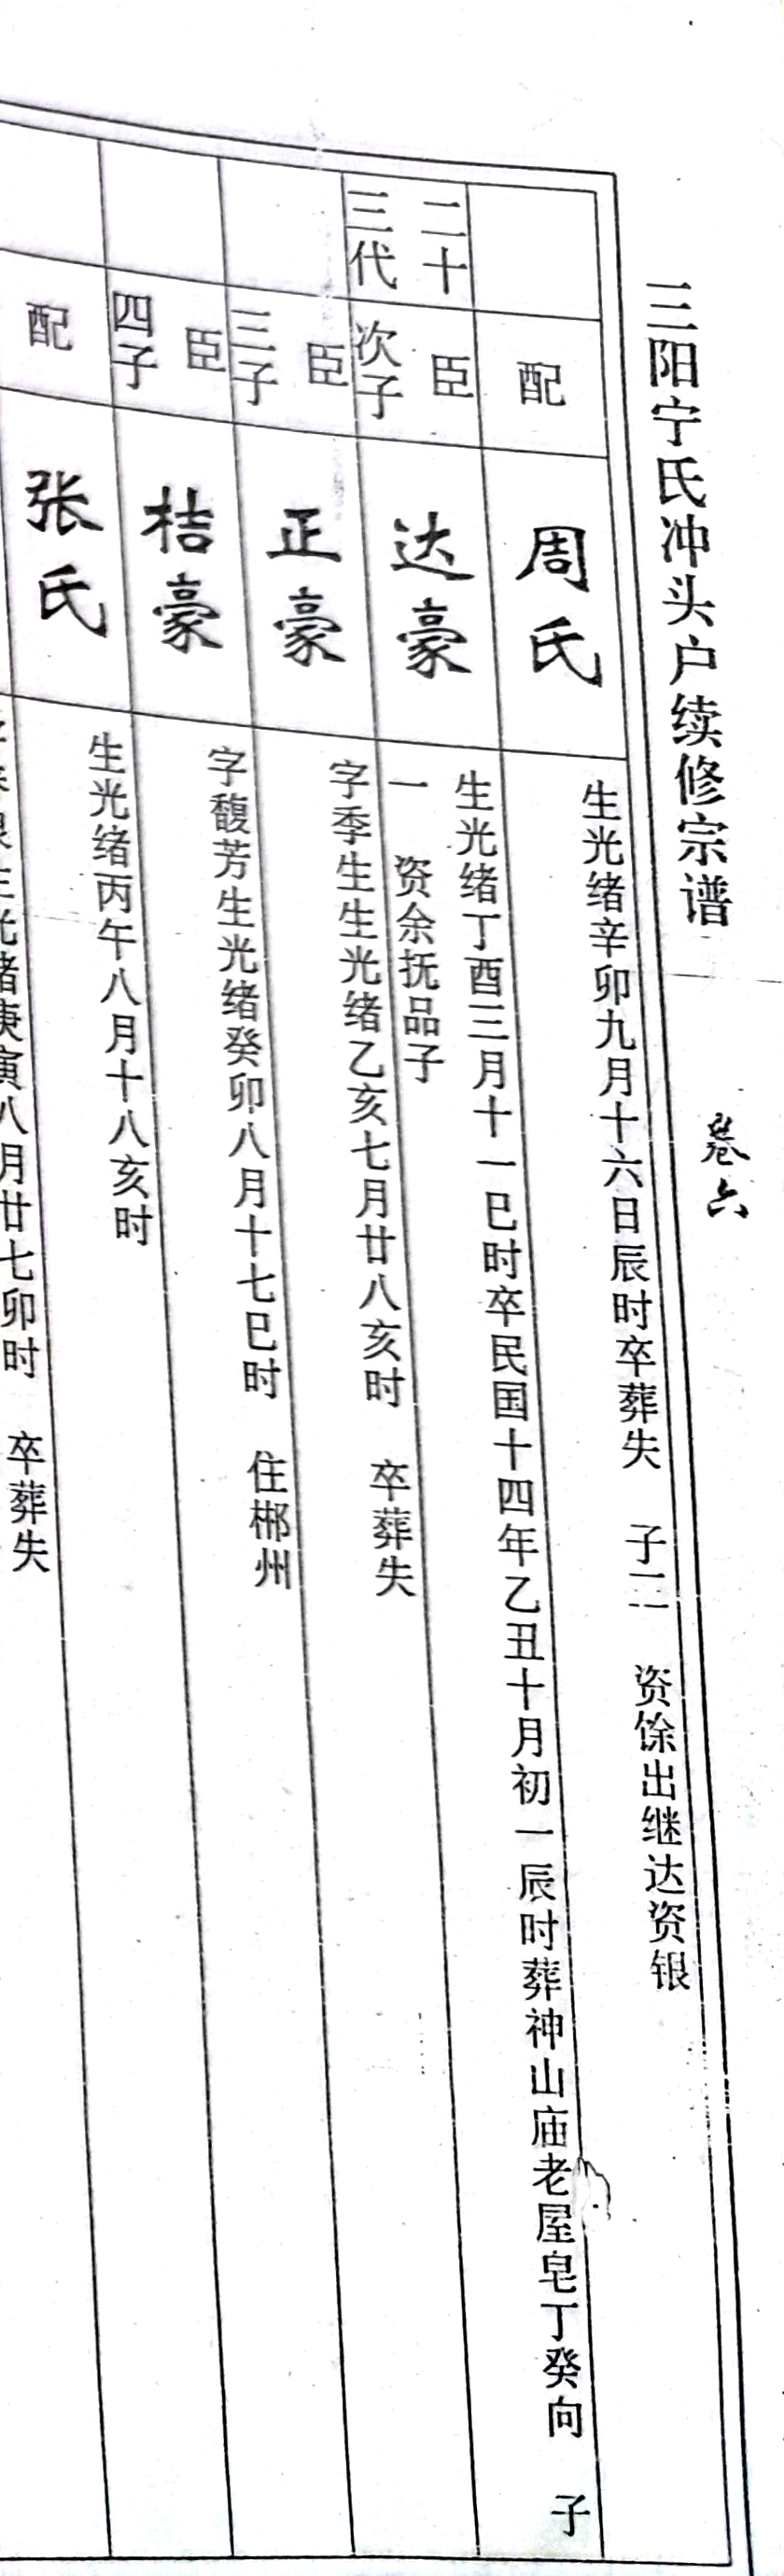 三阳宁氏冲头户续修宗谱
卷六
配
周氏
生光绪辛卯九月十六日辰时卒葬失 子二 资馀出继达资银
二十
三代
臣
次子
达豪
生光绪丁酉三月十一巳时卒民国十四年乙丑十月初一辰时葬神山庙老屋皂丁癸向 子
一 资余抚品子
臣
三子
正豪
字季生生光绪乙亥七月廿八亥时 卒葬失
臣
四子
桔豪
字馥芳生光绪癸卯八月十七巳时 住郴州
配
张氏
生光绪丙午八月十八亥时
生光绪庚寅八月廿七卯时 卒葬失